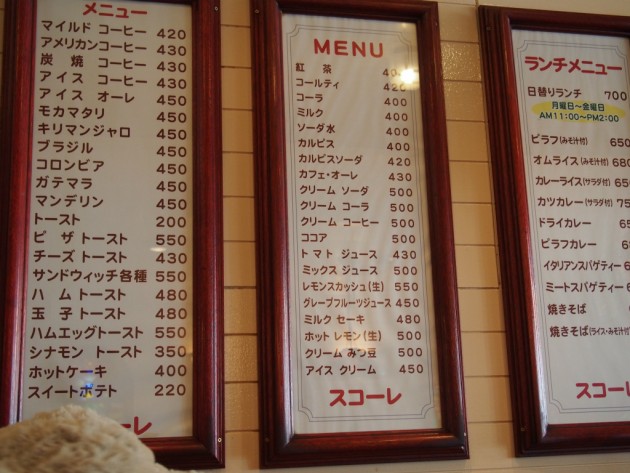 メニュー
マイルド コーヒー 420
アメリカンコーヒー 430
炭 焼 コーヒー 430
アイス コーヒー 430
アイス オーレ 450
モカマタリ 450
キリマンジャロ 450
ブラジル 450
コロンビア 450
ガテマラ 450
マンデリン 450
トースト 200
ピ ザ トースト 550
チーズ トースト 430
サンドウィッチ各種 550
ハ ム トースト 480
玉 子 トースト 480
ハムエッグトースト 550
シナモン トースト 350
ホットケーキ 400
スイートポテト 220
スコーレ
MENU
紅 茶
コールティ 420
コーラ 400
ミルク 400
ソーダ水 400
カルピス 400
カルピスソーダ 420
カフェ・オーレ 430
クリーム ソーダ 500
クリーム コーラ 500
クリーム コーヒー 500
ココア 500
トマト ジュース 430
ミックス ジュース 500
レモンスカッシュ(生) 550
グレープフルーツジュース 450
ミルク セーキ 480
ホット レモン(生) 500
クリーム みつ豆 500
アイス クリーム 450
スコーレ
ランチメニュー
日替りランチ 700
月曜日〜金曜日
AM11:00〜PM2:00
ピラフ(みそ汁付) 650
オムライス(みそ汁付) 680
カレーライス(サラダ付)
カツカレー(サラダ付)
ドライカレー
ピラフカレー
イタリアンスパゲティー
ミートスパゲティー
焼きそば
焼きそば(ライス・みそ汁付)
スコーレ